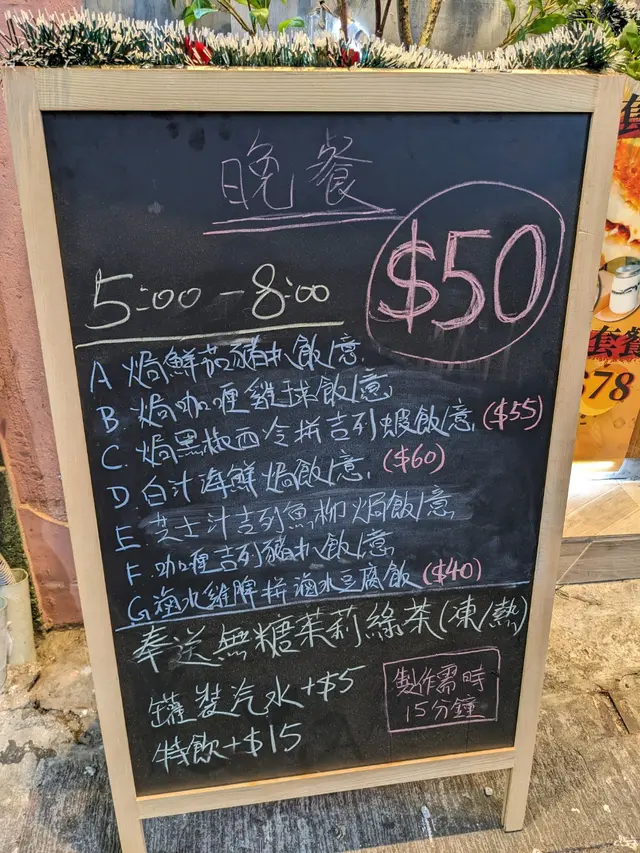 晚餐
$50
5:00-8:00
A 焗鮮茄豬扒飯/意
B. 焗咖喱雞球飯/意
C. 焗黑椒西冷拼吉列蝦飯/意 ($55)
D. 白汁海鮮焗飯/意 ($60)
E. 芝士汁吉列魚柳焗飯/意
F. 咖喱吉列豬扒飯/意
G. 滷水雞髀拼滷水豆腐飯 ($40)
奉送無糖茉莉綠茶(凍/熱)
罐裝汽水+$5
特飲+$15
製作需時
15分鐘
套餐
$78